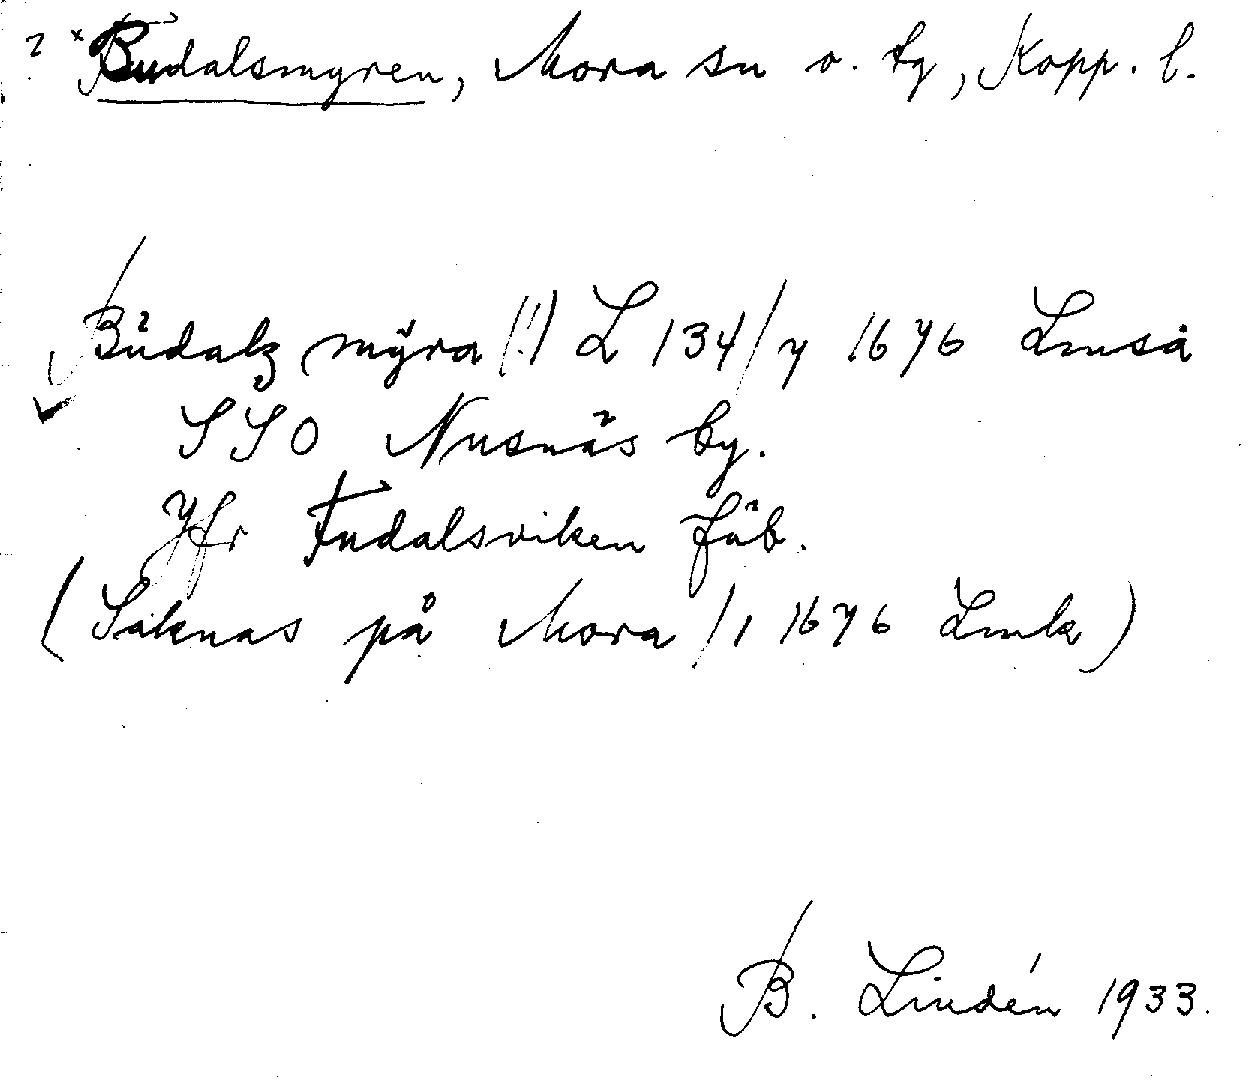 ? × Budalsmyren, Mora sn o. tg, Kopp. l.
Bŭdalz mÿra (!) L 134/7 1676 Lmså
SSO Nusnäs by.
Jfr Fudalsviken fäb.
(Saknas på Mora /1 1676 Lmk)
B. Lindén 1933.